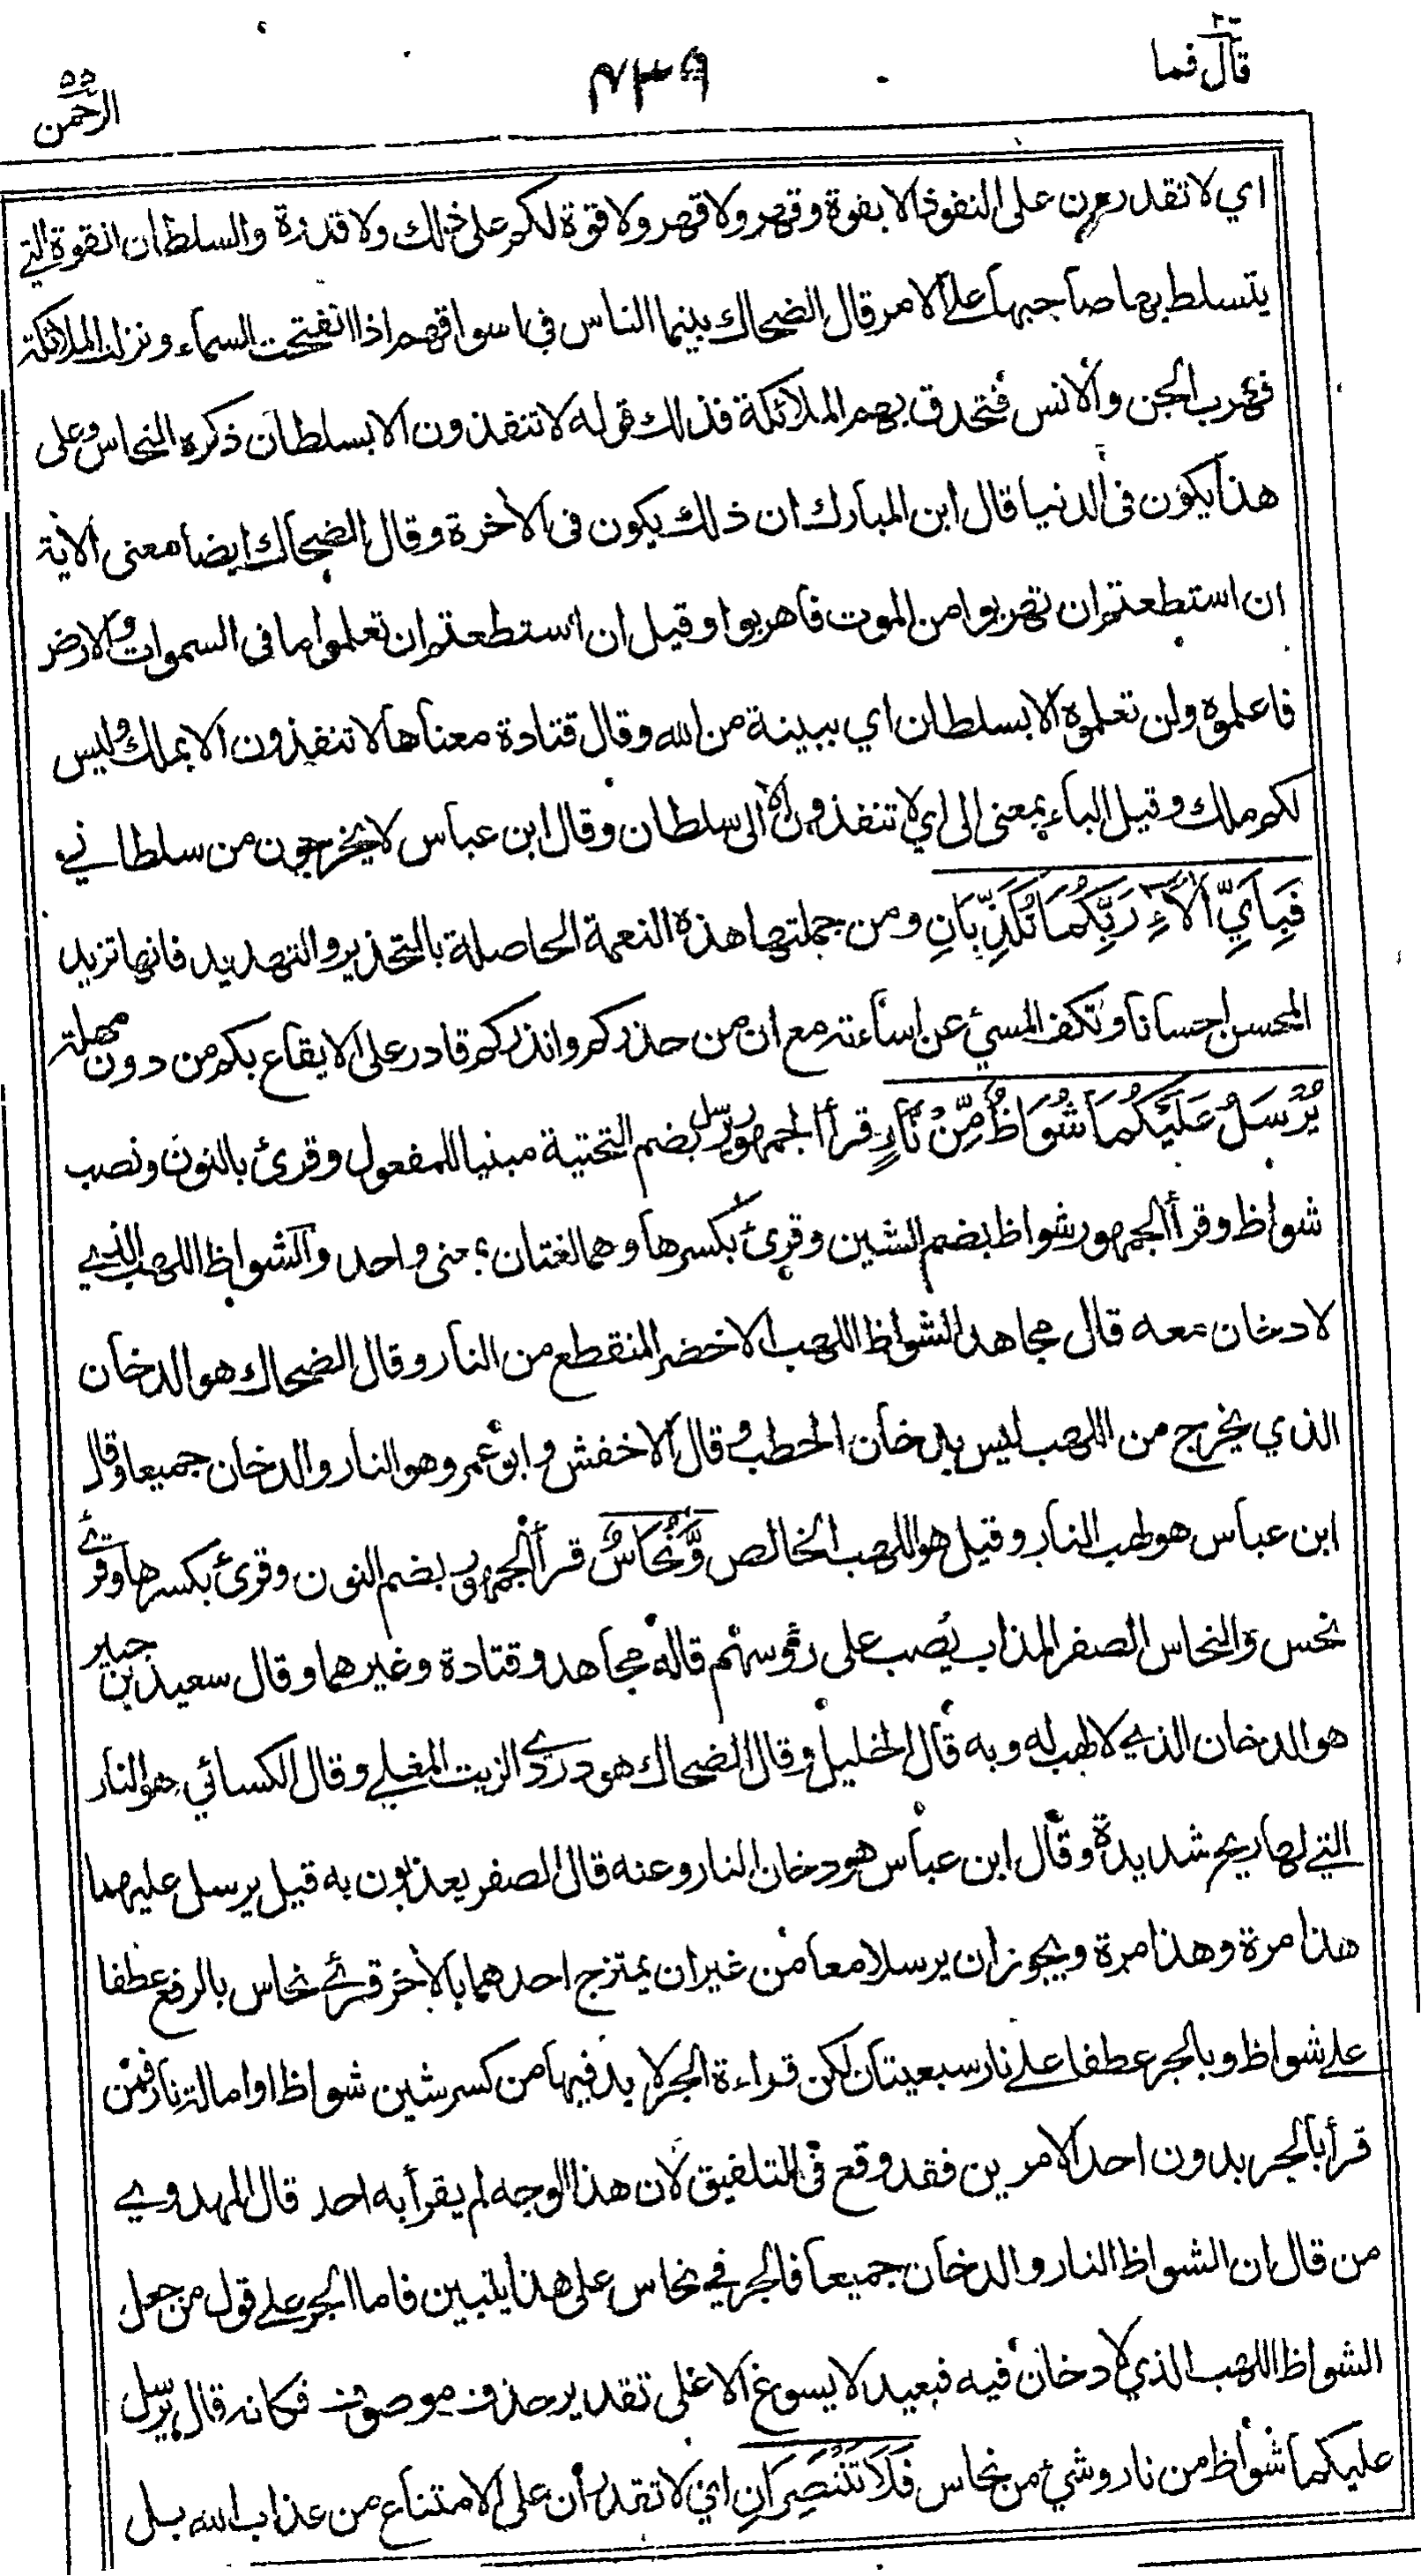 قال فما
۲۷
۴۳۹
۵۵
الرحمن
اي لا تقدرون على النفوذ الا بقوة وقهر ولا قهر ولا قوة لكم على ذلك ولا قدرة والسلطان القوة التي
يتسلط بها صاحبها على الامر قال الضحاك بينما الناس في اسواقهم اذا انفتحت السماء ونزلت الملائكة
فهرب الجن والانس فتحدق بهم الملائكة فذلك قوله لا تنفذون الا بسلطان ذكره النحاس وعلى
هذا يكون في الدنيا قال ابن المبارك ان ذلك يكون في الاخرة وقال الضحاك ايضا معنى الاية
ان استطعتم ان تهربوا من الموت فاهربوا وقيل ان استطعتم ان تعلموا ما في السموات والارض
فاعلموه ولن تعلموه الا بسلطان اي ببينة من الله وقال قتادة معناها لا تنفذون الا بملك وليس
لكم ملك وقيل الباء بمعنى الى اي لا تنفذون الا الى سلطان وقال ابن عباس لا يخرجون من سلطاني
فَبِاَيِّ اٰلَآءِ رَبِّكُمَا تُكَذِّبَانِ ومن جملتها هذه النعمة الحاصلة بالتحذير والتهديد فانها تزيد
المحسن احسانا وتكف المسيئ عن اساءته مع ان من حذركم وانذركم قادر على الايقاع بكم من دون مهلة
يُرْسَلُ عَلَيْكُمَا شُوَاظٌ مِّنْ نَّارٍ قرأ الجمهور يرسل بضم التحتية مبنيا للمفعول وقرئ بالنون ونصب
شواظ وقرأ الجمهور شواظ بضم الشين وقرئ بكسرها وهما لغتان بمعنى واحد والشواظ اللهب الذي
لا دخان معه قال مجاهد الشواظ اللهب الاخضر المنقطع من النار وقال الضحاك هو الدخان
الذي يخرج من اللهب ليس بدخان الحطب وقال الاخفش وابو عمرو هو النار والدخان جميعا وقال
ابن عباس هو لهب النار وقيل هو اللهب الخالص وَّنُحَاسٌ قرأ الجمهور بضم النون وقرئ بكسرها وقرئ
نحس والنحاس الصفر المذاب يصب على رؤوسهم قاله مجاهد وقتادة وغيرهما وقال سعيد بن جبير
هو الدخان الذي لا لهب له وبه قال الخليل وقال الضحاك هو دردي الزيت المغلي وقال الكسائي هو النار
التي لها ريح شديدة وقال ابن عباس هو دخان النار وعنه قال الصفر يعذبون به قيل يرسل عليهما
هذا مرة وهذا مرة ويجوز ان يرسلا معا من غير ان يمتزج احدهما بالاخر قرئ نحاس بالرفع عطفا
على شواظ وبالجر عطفا على نار سبعيتان لكن قراءة الجر لا بد فيها من كسر شين شواظ او امالة نار فمن
قرأ بالجر بدون احد الامرين فقد وقع في التلفيق لان هذا الوجه لم يقرأ به احد قال المهدوي
من قال ان الشواظ النار والدخان جميعا فالجر في نحاس على هذا يتبين فاما الجر على قول من جعل
الشواظ اللهب الذي لا دخان فيه فبعيد لا يسوغ الا على تقدير حذف موصوف فكانه قال يرسل
عليكما شواظ من نار وشئ من نحاس فَلَا تَنْتَصِرَانِ اي لا تقدران على الامتناع من عذاب الله بل